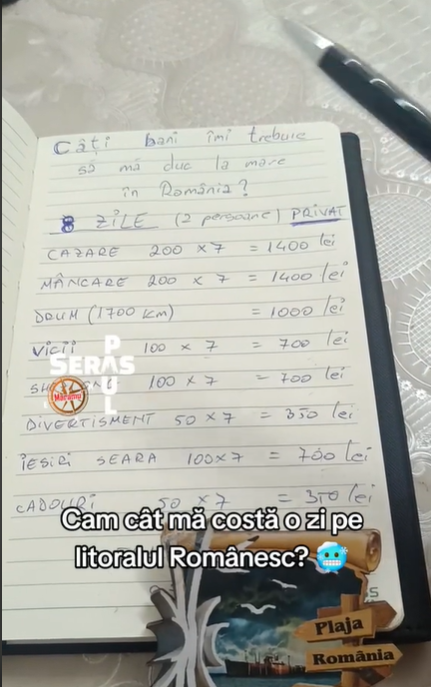 Câți bani îmi trebuie
să mă duc la mare
în România?
8 ZILE (2 persoane) PRIVAT
CAZARE 200 x 7 = 1400 lei
MÂNCARE 200 x 7 = 1400 lei
DRUM (1700 km) = 1000 lei
Vicii 100 x 7 = 700 lei
100 x 7 = 700 lei
DIVERTISMENT 50 x 7 = 350 lei
IEȘIRI SEARA 100x7 = 700 lei
CADOURI 50 x 7 = 350 lei
SERAS
PAUL
Cam cât mă costă o zi pe
litoralul Românesc? 🥶
Plaja
România